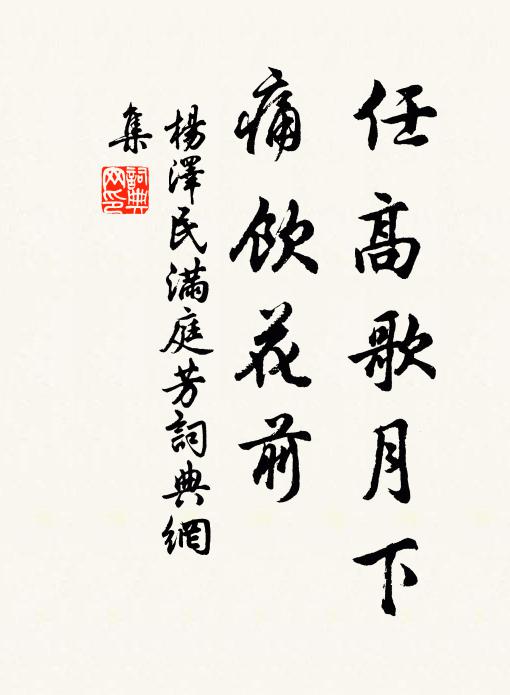 任高歌月下
痛飲花前
楊澤民滿庭芳詞典網
集
詞典
网印